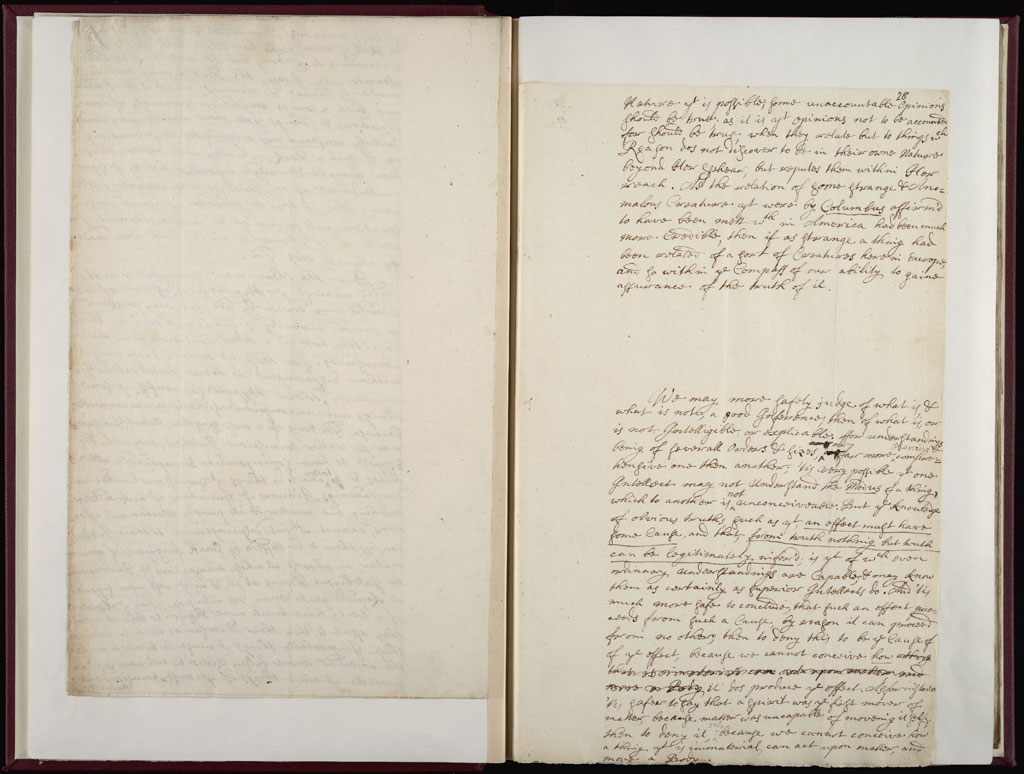 28
Nature yt is possible, some unaccountable Opinions
should be true, as it is yt opinions not to be accounted
for should be true when they relate but to things wch
Reason dos not discover to be in their owne Nature
beyond Her sphear, but reputes them within Her
reach. As the relation of some strange & Ano=
malous Creature yt were by Columbus affirm'd
to have been mett wth in America had been much
more Credible, then if as strange a thing had
been related of a sort of Creatures here in Europe,
and so within ye Compass of our ability to gaine
assurance of the truth of it.
We may more safely judge of what is &
what is not a good Inference, then of what is, or
is not Intelligible or explicable. ffor understandings
being of severall Orders & sizes, & some far more compre=
hensive one then another, 'tis very possible yt one
Intellect may not Understand the Modus of a thing,
which to another is not unconceiveable. But ye knowledge
of obvious truths such as yt an effect must have
some Cause, and that from truth nothing but truth
can be legitimately inferd, is yt of wch even
ordinary Understandings are Capable, & may know
them as certainly as superior Intellects do. And 'tis
much more safe to conclude, that such an effect pro=
ceeds from such a Cause, by reason it can proceed
from no other, then to deny this to be ye Cause of
of ye effect, because we cannot conceive how
it dos produce ye effect. As for instance
'tis safer to say that a spirit was ye first mover of
matter, because matter was uncapable of moveing it self,
then to deny it, because we cannot conceive how
a thing yt is immaterial, can act upon matter, and
move a Body.